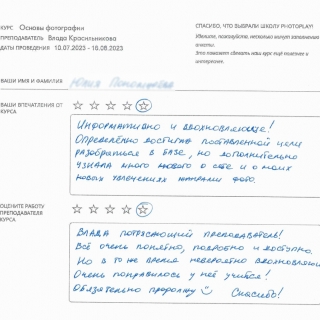 КУРС Основы фотографии
ПРЕПОДАВАТЕЛЬ Влада Красильникова
ДАТЫ ПРОВЕДЕНИЯ 10.07.2023 - 16.08.2023
СПАСИБО, ЧТО ВЫБРАЛИ ШКОЛУ PHOTOPLAY!
Уделите, пожалуйста, несколько минут заполнению
анкеты.
Это поможет сделать наш курс ещё полезнее и
интереснее.
ВАШИ ИМЯ И ФАМИЛИЯ Юлия
ВАШИ ВПЕЧАТЛЕНИЯ ОТ
КУРСА
Информативно и вдохновляюще!
Определённо достигла поставленной цели
разобраться в базе, но дополнительно
узнала много нового о себе и о моих
новых увлечениях жанрами фото.
ОЦЕНИТЕ РАБОТУ
ПРЕПОДАВАТЕЛЯ
КУРСА
Влада потрясающий преподаватель!
Всё очень понятно, подробно и доступно.
Но в то же время невероятно вдохновляюще
Очень понравилось у неё учиться!
Обязательно продолжу Спасибо!